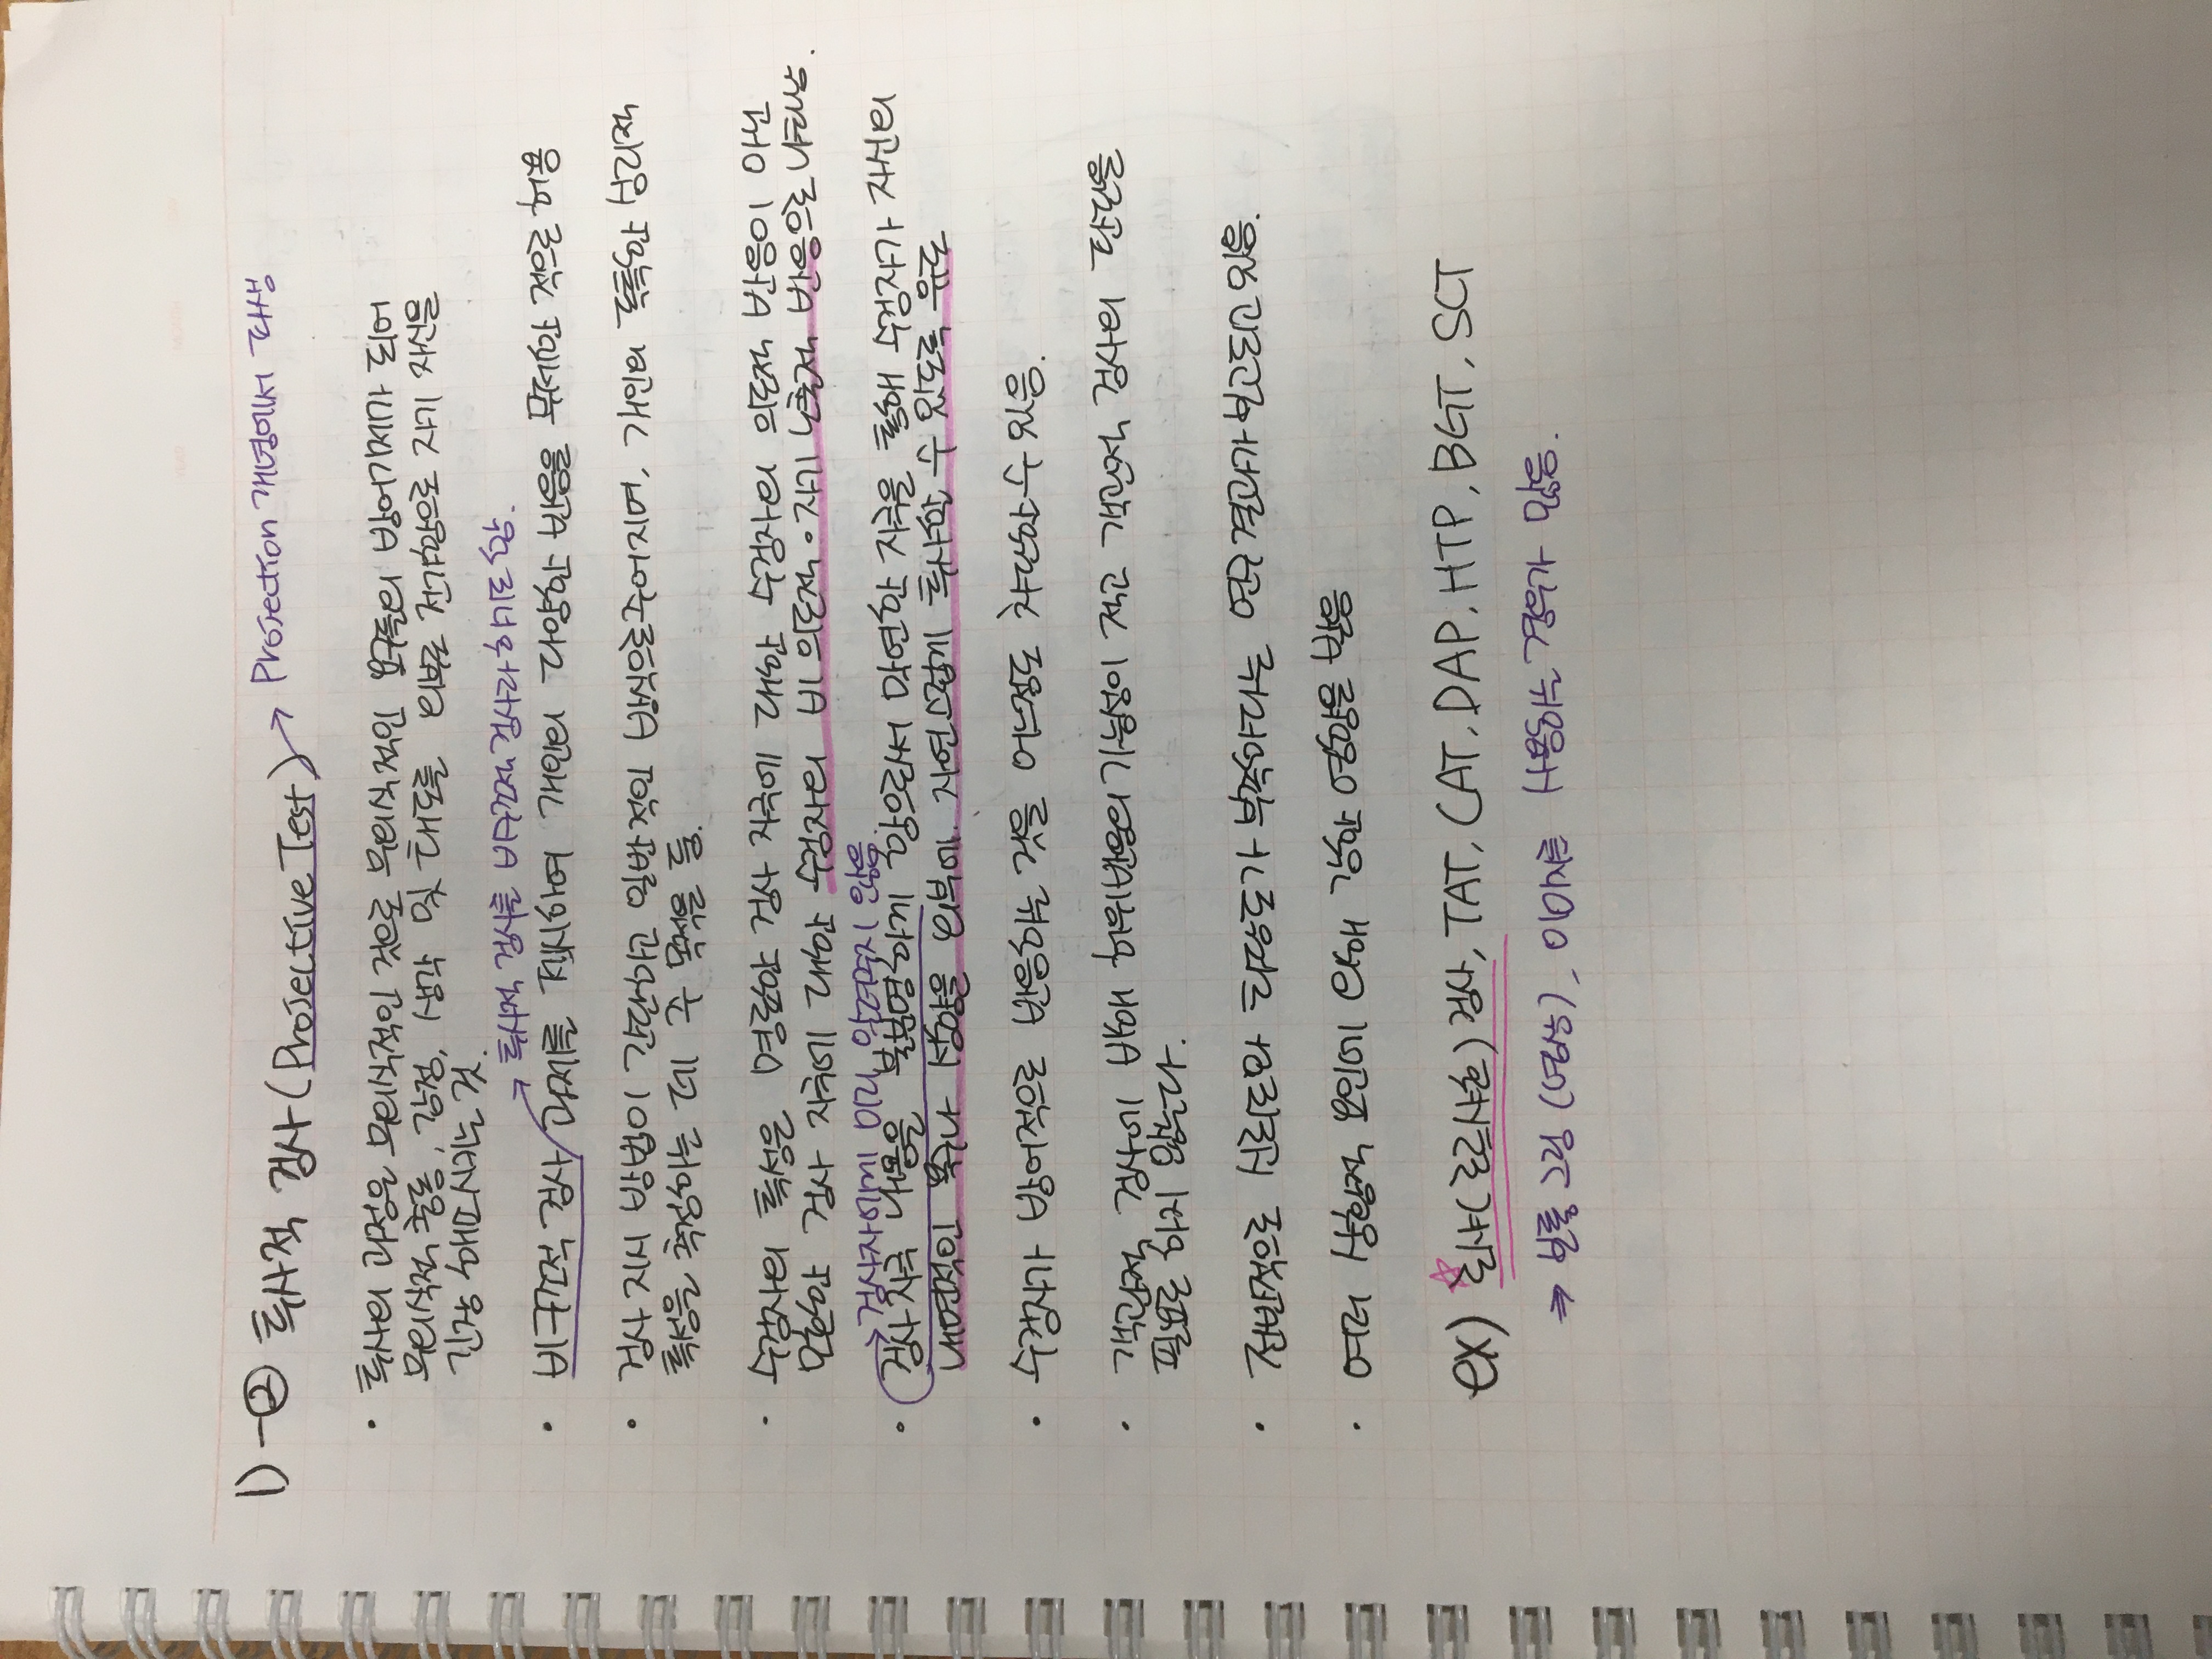 1) - ② 투사적 검사 (Projective Test) → Projection 개념에서 파생
· 투사의 과정은 무의식적인 것으로 무의식적인 요구들의 방어기제가 되어
무의식적 충동, 감정, 생각 및 태도를 외부로 전가함으로 자기 자신을
긴장 해소시키는 것.
→ 투사적 검사를 비구조적 검사라 하기도 함.
· 비구조적 검사 과제를 제시하여 개인의 다양한 반응을 무제한 적으로 허용
· 검사 지시 방법이 간단하고 일반적인 방식으로 주어지며, 개인의 독특한 심리적
특성을 측정하는 데 주 목적을 둠.
· 수검자의 특성은 명료한 검사 자극에 대한 수검자의 의도적 반응이 아닌
모호한 검사 자극에 대한 수검자의 비 의도적·자기 노출적 반응으로 나타남.
→ 검사자에게 미리 알려주지 않음.
· 검사 자극 내용을 불분명하게 함으로서 막연한 자극을 통해 수검자가 자신의
내면적인 욕구나 성향을 외부에 자연스럽게 투사할 수 있도록 유도
· 수검자가 방어적으로 반응하는 것을 어느정도 차단할 수 있음.
· 객관적 검사에 비해 허위반응의 가능성이 적고 객관적 검사의 판단을
필요로 하지 않는다.
· 전반적으로 신뢰도와 타당도가 부족하다는 연구 결과가 보고되고 있음.
· 여러 상황적 요인에 의해 강한 영향을 받음
ex) ☆로샤(로르샤흐) 검사, TAT, CAT, DAP, HTP, BGT, SCT
⇒ 보통 그림 (영상), 이미지를 사용하는 경우가 많음.